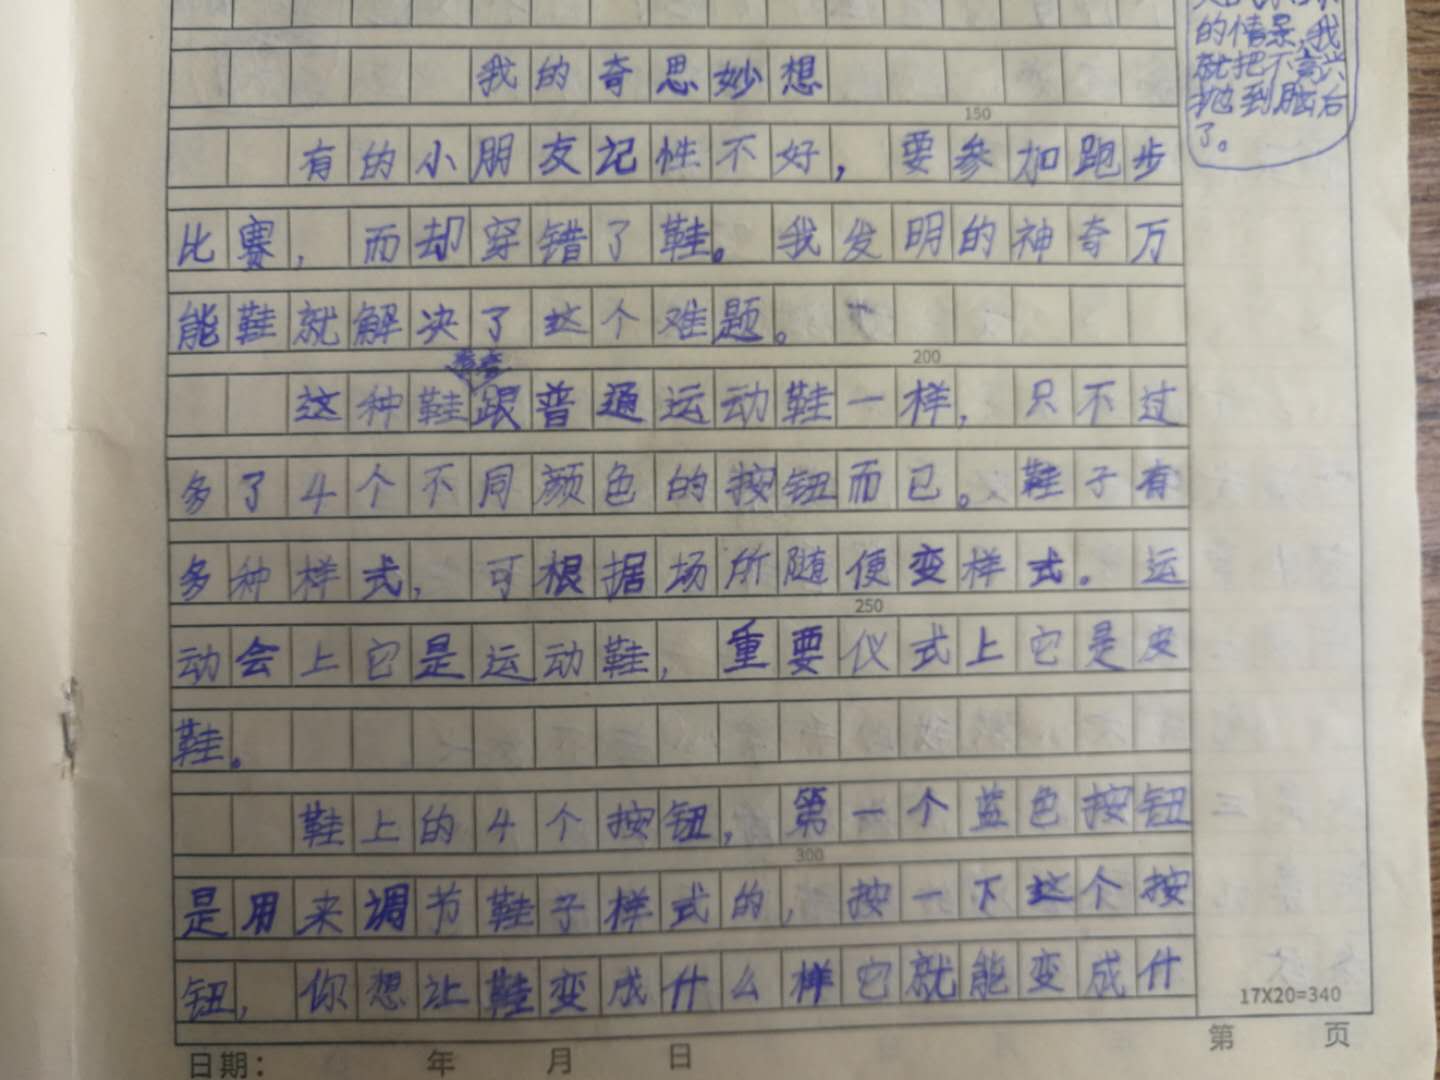 的情景，我
就把不高兴
抛到脑后
了。
我的奇思妙想
150
有的小朋友记性不好，要参加跑步
比赛，而却穿错了鞋。我发明的神奇万
能鞋就解决了这个难题。
200
这种鞋跟普通运动鞋一样，只不过
多了4个不同颜色的按钮而已。鞋子有
多种样式，可根据场所随便变样式。运
250
动会上它是运动鞋，重要仪式上它是皮
鞋。
鞋上的4个按钮，第一个蓝色按钮
300
是用来调节鞋子样式的，按一下这个按
钮，你想让鞋变成什么样它就能变成什
17X20=340
日期： 年 月 日
第 页